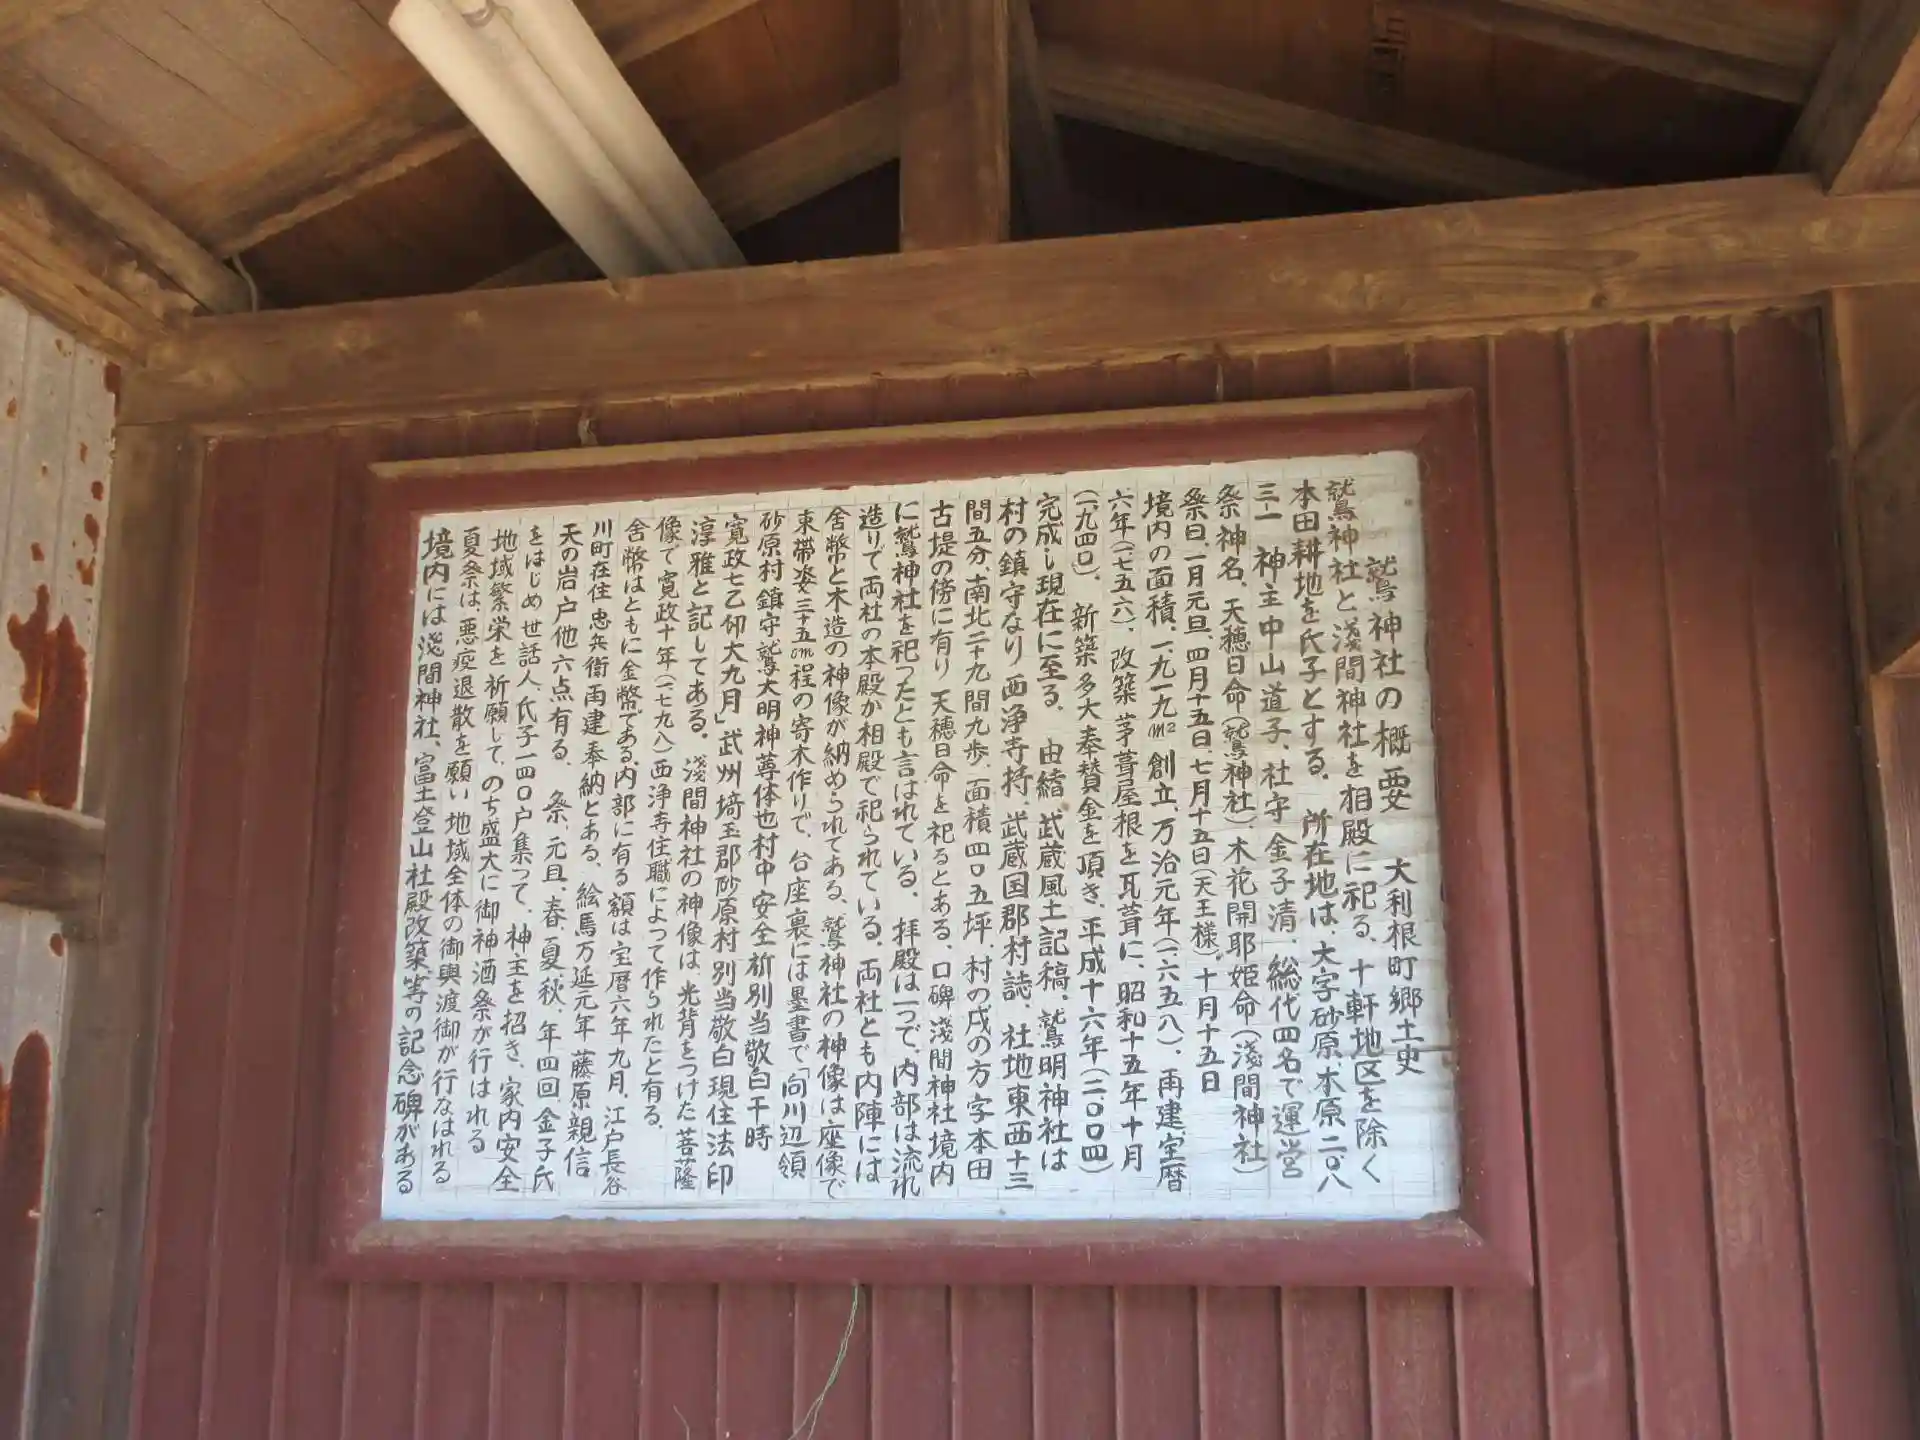 鷲神社の概要　大利根町郷土史
鷲神社と浅間神社を相殿に祀る、十軒地区を除く
本田耕地を氏子とする。　所在地は、大字砂原、本原二〇八
三ー一　神主中山道子、社守　金子清、総代四名で運営
祭神名、天穂日命（鷲神社）、木花開耶姫命（淺間神社）
祭日、一月元旦、四月十五日、七月十五日（天王様）、十月十五日
境内の面積、一、九一九m²　創立、万治元年（一六五八）、再建、宝暦
六年（一七五六）、改築　茅葺屋根を瓦葺に、昭和十五年十月
（一九四〇）、　新築多大奉賛金を頂き、平成十六年（二〇〇四）
完成し現在に至る。　由緒　武蔵風土記稿、鷲明神社は
村の鎮守なり　西浄寺持、武蔵国郡村誌、社地東西十三
間五分、南北二十九間九歩、面積四〇五坪、村の戌の方字本田
古堤の傍に有り　天穂日命を祀るとある、口碑　淺間神社境内
に鷲神社を祀ったとも言はれている。　拝殿は一つで、内部は流れ
造りで両社の本殿が相殿で祀られている。両社とも内陣には
舍幣と木造の神像が納められてある、鷲神社の神像は座像で
束帯姿三十五cm程の寄木作りで、台座裏には墨書で「向川辺領
砂原村鎮守鷲大明神尊体也村中安全祈別当敬白干時
寛政七乙卯大九月」武州埼玉郡砂原村別当敬白現住法印
淳雅と記してある。　淺間神社の神像は、光背をつけた菩薩
像で寛政十年（一七九八）西浄寺住職によって作られたと有る。
舍幣はともに金幣である、内部に有る額は宝暦六年九月、江戸長谷
川町在住　忠兵衛再建奉納とある、　絵馬万延元年　藤原親信
天の岩戸他六点有る、　祭、元旦、春、夏、秋、年四回　金子氏
をはじめ世話人、氏子一四〇戸集って、神主を招き、家内安全
地域繁栄を祈願して、のち盛大に御神酒祭が行はれる
夏祭は、悪疫退散を願い地域全体の御輿渡御が行なはれる
境内には淺間神社、富士登山社殿改築、等の記念碑がある